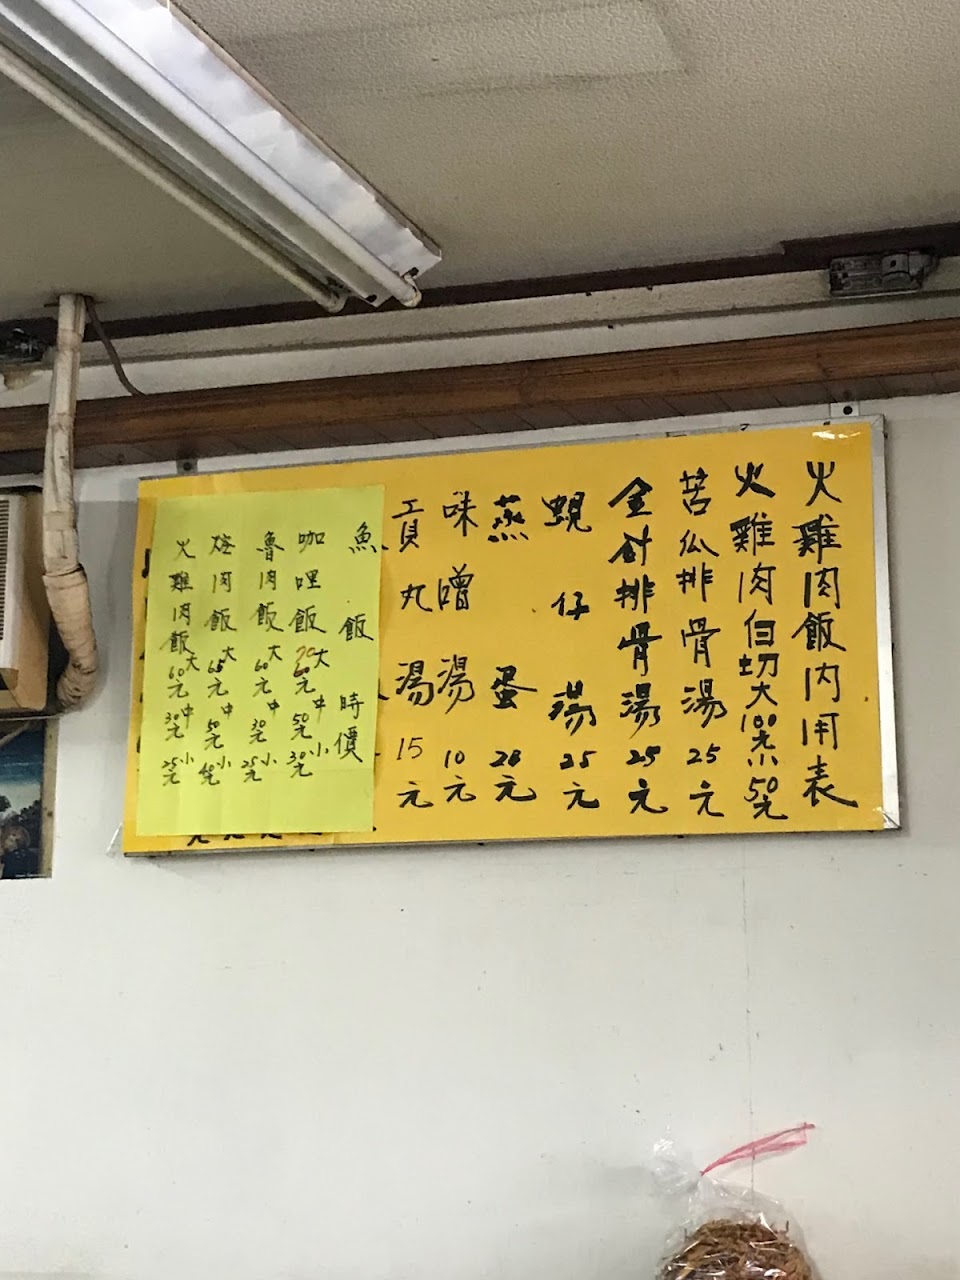 火雞肉飯內用表
火雞肉白切大100元小50元
苦瓜排骨湯25元
金針排骨湯25元
蜆仔湯25元
蒸蛋20元
味噌湯10元
貢丸湯15元
魚飯時價
咖哩飯大70元中50元小30元
魯肉飯大60元中30元小25元
焢肉飯大65元中50元小40元
火雞肉飯大60元中30元小25元